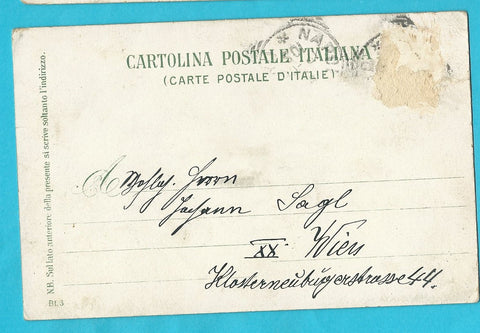 CARTOLINA POSTALE ITALIANA
(CARTE POSTALE D'ITALIE)
NB. Sul lato anteriore della presente si scrive soltanto l'indirizzo.
A Herrn
Johann Sagl
XX. Wien
Klosterneuburgerstrasse 44.